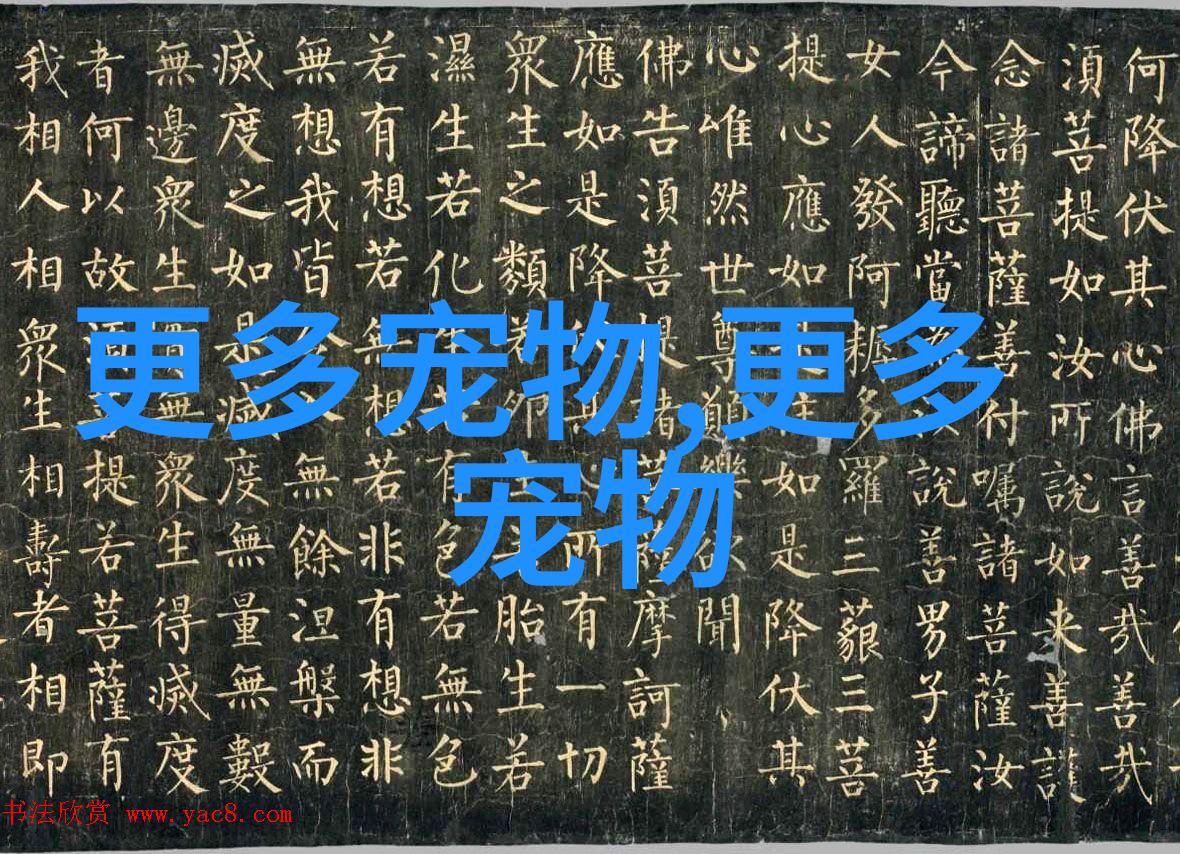 何降伏其心佛言善哉善哉
須菩提如汝所說如来善護
念諸菩薩善付嘱諸菩薩汝
今諦聽當為汝說善男子善
女人發阿耨多羅三藐三菩
提心應如是住如是降伏其
心唯然世尊願樂欲聞
佛告須菩提諸菩薩摩訶薩
應如是降伏其心所有一切
眾生之類若卵生若胎生若
濕生若化生若有色若無色
若有想若無想若非有想非
無想我皆令入無餘涅槃而
滅度之如是滅度無量無數
無邊眾生實無眾生得滅度
者何以故須菩提若菩薩有
我相人相眾生相壽者相即
更多宠物,更多
宠物
书法欣赏 www.yac8.com